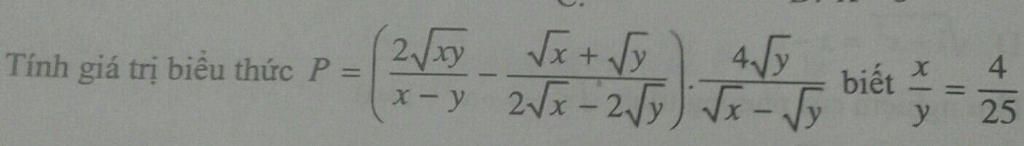 Tính giá trị biểu thức P = (2√xy / (x − y) − (√x + √y) / (2√x − 2√y)) . 4√y / (√x − √y) biết x/y = 4/25